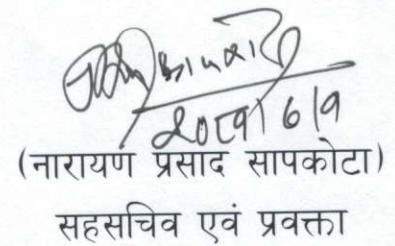 २०८१/६/१
(नारायण प्रसाद सापकोटा)
सहसचिव एवं प्रवक्ता